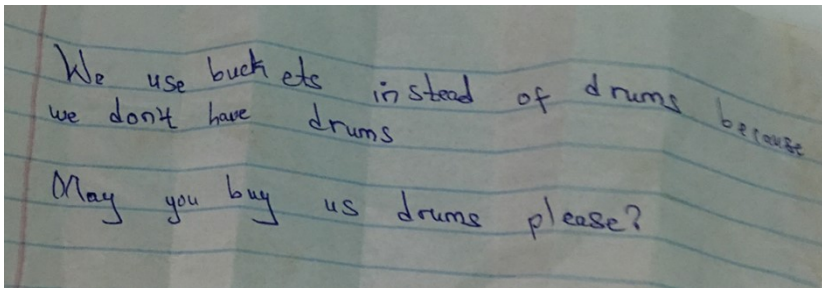 We use buckets instead of drums because
we don't have drums
May you buy us drums please?